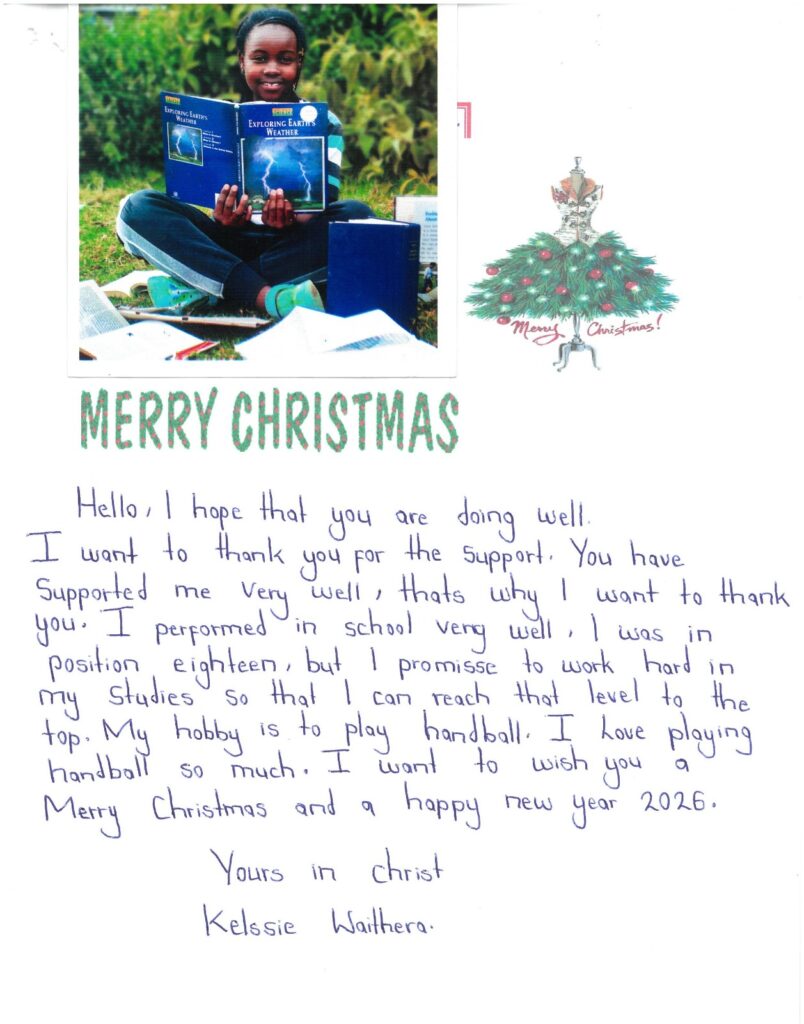 EXPLORING EARTH'S
WEATHER
SCIENCE
EXPLORING EARTH'S
WEATHER
Merry Christmas!
MERRY CHRISTMAS
Hello, I hope that you are doing well.
I want to thank you for the support. You have
Supported me very well, thats why I want to thank
you. I performed in school very well, I was in
position eighteen, but I promisse to work hard in
my Studies so that I can reach that level to the
top. My hobby is to play handball. I Love playing
handball so much. I want to wish you a
Merry Christmas and a happy new year 2026.
Yours in christ
Kelssie Waithera.